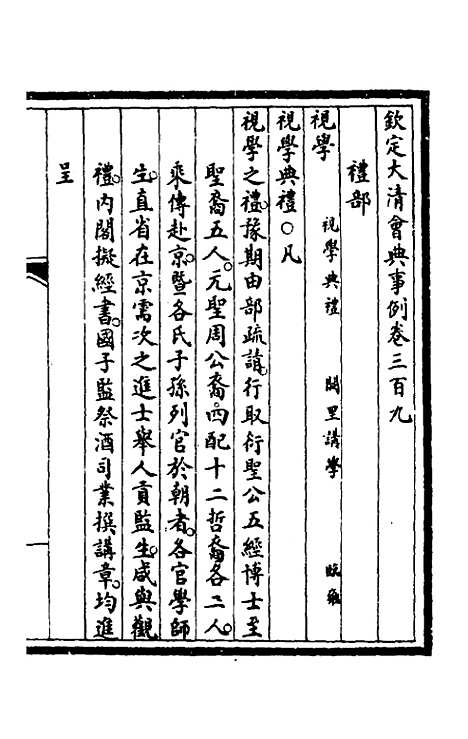 欽定大清會典事例卷三百九
禮部
視學 視學典禮 闕里講學
視學典禮○凡
視學之禮豫期由部疏請行取衍聖公五經博士至
聖裔五人元聖周公裔四配十二哲裔各二人
乘傳赴京暨各氏子孫列官於朝者各官學師
生直省在京需次之進士舉人貢監生咸與觀
禮內閣擬經書國子監祭酒司業撰講章均進
呈